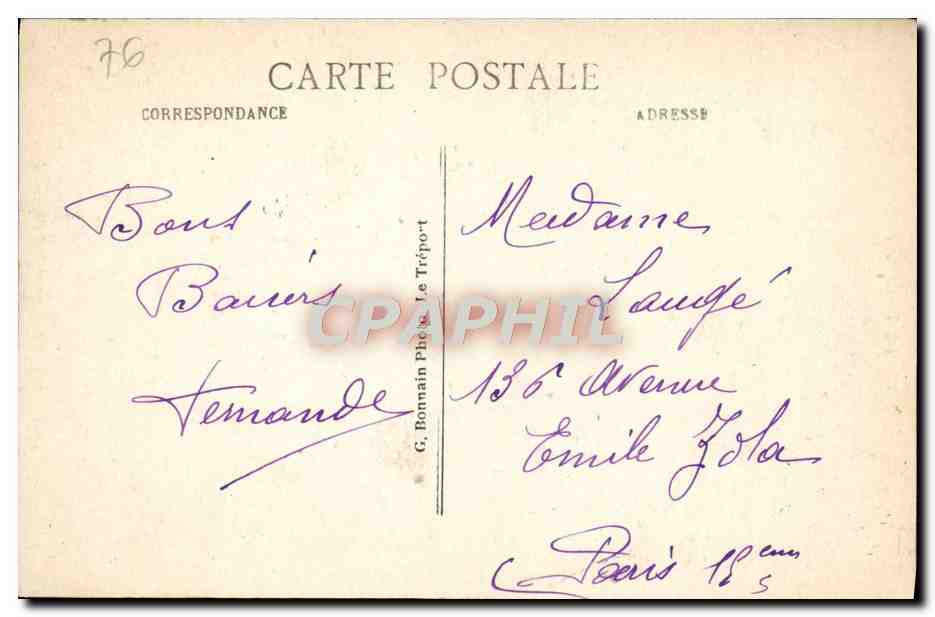 76
CARTE POSTALE
CORRESPONDANCE
ADRESSE
Bons
Baisers
Fernande
G. Bonnain Photo. Le Tréport
Madame
Laugé
136 Avenue
Emile Zola
Paris 15 eme
CPAPHIL